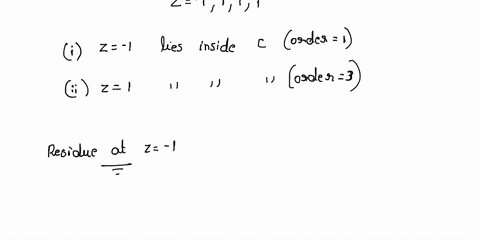 z = -1, 1, 1, 1
(i) z = -1 lies inside C (order = 1)
(ii) z = 1 ,, ,, ,, (order = 3)
Residue at z = -1